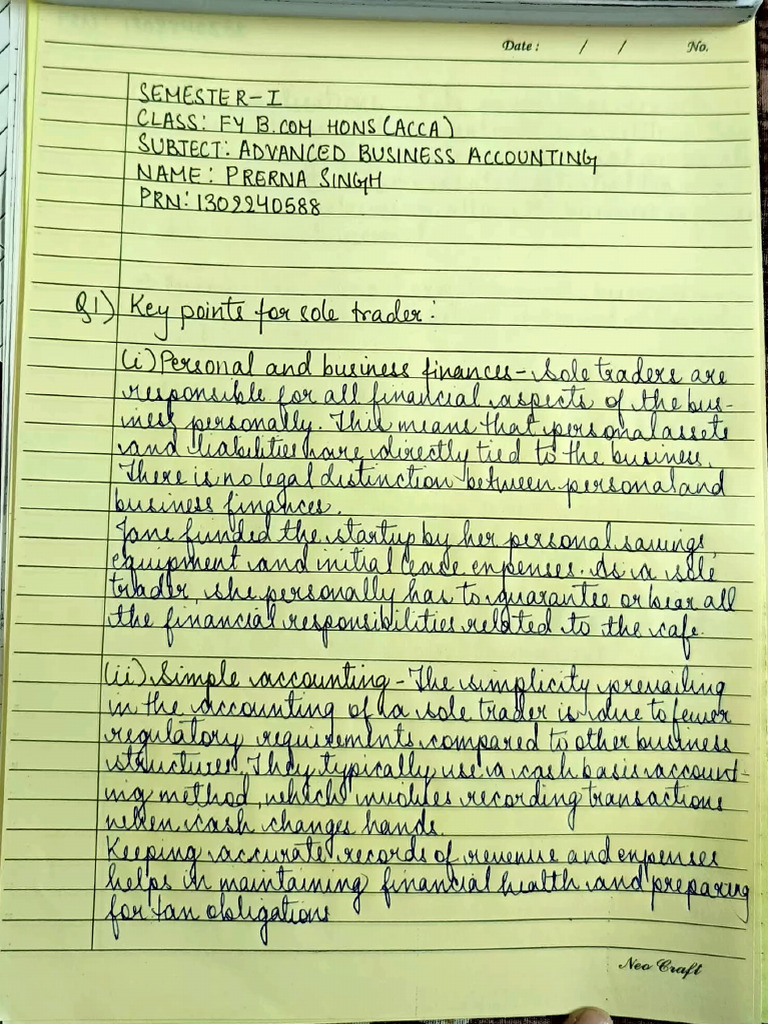 Date: / / No.
SEMESTER-I
CLASS: FY B.COM HONS (ACCA)
SUBJECT: ADVANCED BUSINESS ACCOUNTING
NAME: PRERNA SINGH
PRN: 1302240588
Q1) Key points for sole trader:
(i) Personal and business finances - Sole traders are
responsible for all financial aspects of the bus-
iness personally. This means that personal assets
and liabilities are directly tied to the business.
There is no legal distinction between personal and
business finances.
Jane funded the startup by her personal savings,
equipment and initial lease expenses. As a sole
trader, she personally has to guarantee or bear all
the financial responsibilities related to the cafe.
(ii) Simple accounting - The simplicity prevailing
in the accounting of a sole trader is due to fewer
regulatory requirements compared to other business
structures. They typically use a cash basis account-
ing method, which involves recording transactions
when cash changes hands.
Keeping accurate records of revenue and expenses
helps in maintaining financial health and preparing
for tax obligations
Neo Craft